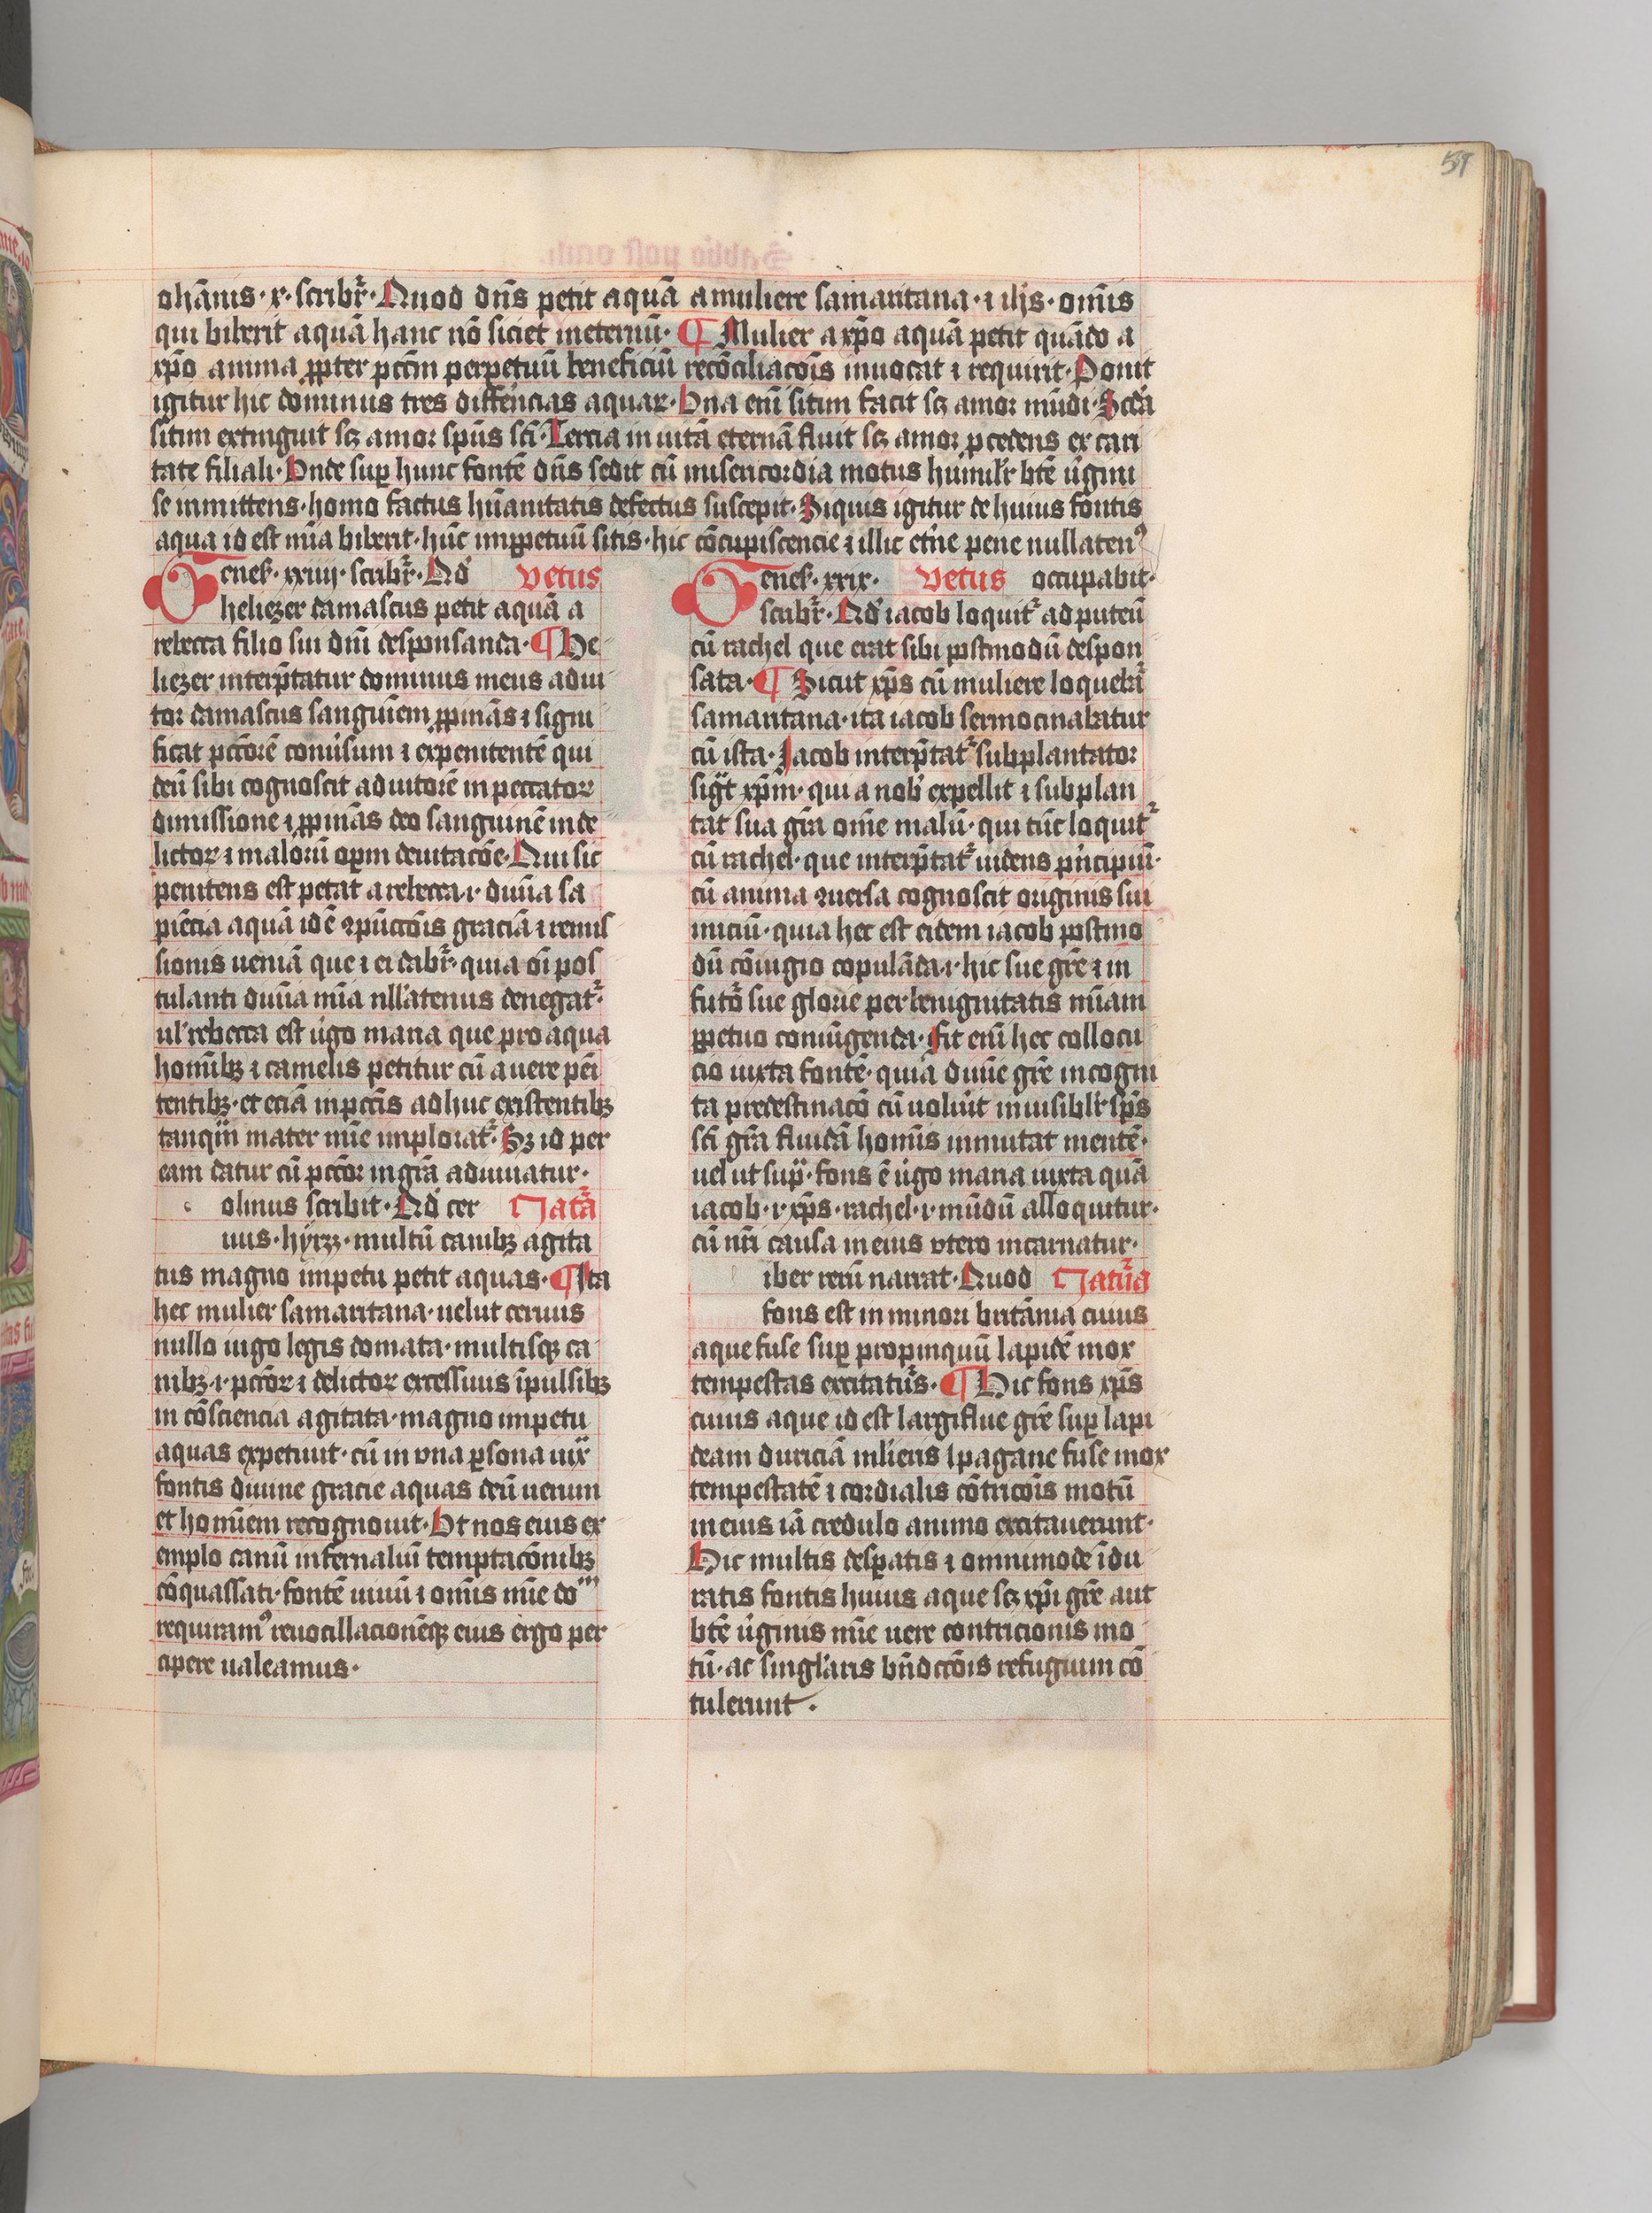 51
ohānis · x · scribr̄ · Quod dn̄s petit aquā a muliere samaritana · ⁊ · om̄is
qui biberit aquā hanc nō siciet ineternū · ¶ Mulier a xp̄o aquā petit quādo a
xp̄o anima ꝓpter pctm̄ perpetuū beneficiū recōciliacōis inuocat ⁊ requirit · Ponit
igitur hic dominus tres differ̄ncias aquaꝝ · Vna em̄ sitim facit sꝫ amor mūdi · Scd̄a
sitim extinguit sꝫ amor spūs sc̄i · Tercia in uitā eternā fluit sꝫ amor ꝓcedens ex cari
tate filiali · Vnde suꝑ hunc fontē dn̄s sedit cū misericordia motus humilr̄ btē v̄gini
se inmittens · homo factus hūanitatis defectus suscepit · Siquis igitur de huius fontis
aqua id est mīa biberit · hūc inꝑpetuū sitis · hic cōcupiscencie ⁊ illic et̄ne pene nullatenꝰ
Genes · xxiiii · scribr̄ · Qd̄ Vetus
heliezer damascus petit aquā a
rebecca filio sui dn̄i desponsanda · ¶ He
liezer interp̄tatur dominus meus adiu
tor damascus sanguinem ꝓpinās ⁊ signi
ficat pctōrē conūsum ⁊ expenitentē qui
deū sibi cognoscit adiutorē in peccatoꝝ
dimissione ⁊ ꝓpinās deo sanguinē in de
lictoꝝ ⁊ maloꝝ oꝑm deuitacōe · Qui sic
penitens est petat a rebecca · ı · diuīa sa
piēcia aquā id ē ꝯpūccōis graciā ⁊ remis
sionis ueniā que ⁊ ei dabr̄ · quia oī pos
tulanti diuīa mīa nllatenus denegatr̄ ·
ul̓ rebecca est v̄go maria que pro aqua
homībꝫ ⁊ camelis petitur cū a uere peī
tentibꝫ · et eciā in pctīs adhuc existentibꝫ
tanqm̄ mater mīe imploratr̄ · Sꝫ id per
eam datur cū pctōr in grā adiuuatur ·
olinus scribit · Qd̄ cer Natā
uus · hyrzz · multū canibꝫ agita
tus magno impetu petit aquas · ¶ Ita
hec mulier samaritana · uelut ceruus
nullo iugo legis domata · multisqꝫ ca
nibꝫ · ı · pctōꝝ ⁊ delictoꝝ excessiuis īpulsibꝫ
in cōsciencia agitata · magno impetu
aquas expetiuit · cū in vna ꝑsona
fontis diuine gracie aquas deū uerum
et hominem recognouit · Vt nos eius ex
emplo canū infernaliū temptacōnibꝫ
cōquassati · fontē uiuū ⁊ om̄is mīe
requiramꝰ reuocillacionēqꝫ eius ergo per
cipere ualeamus ·
Genes · xxix · Vetus occupabit ·
scribr̄ · Qd̄ iacob loquitr̄ ad puteū
cū rachel que erat sibi postmodū despon
sata · ¶ Sicut xp̄s cū muliere loquebr̄
samaritana · ita iacob sermocinabatur
cū ista · Jacob interp̄tatr̄ subplantator
sigt̄ xp̄m · qui a nob̓ expellit ⁊ subplan
tat sua grā om̄e malū · qui tūc loquitr̄
cū rachel · que interp̄tatr̄ uidens pn̄cipiū ·
cū anima ꝯuersa cognoscit originis sui
iniciū · quia hec est eidem iacob postmo
dū cōiugio copulāda · ı · hic sue grē ⁊ in
futō sue glorie per benignitatis mīam
ꝑpetuo coniūgenda · Fit em̄ hec collocu
cio iuxta fontē · quia diuīe grē incogni
ta predestinacō cū uolūit inuisiblr̄ sp̄s
sc̄i grā fluidā homīs inmutat mentē ·
uel ut supͣ · fons ē v̄go maria iuxta quā
iacob · ı · xp̄s · rachel · ı · mūdū alloquitur ·
cū nr̄i causa in eius vtero incarnatur ·
iber rerū narrat · Quod Natūa
fons est in minori britānia cuius
aque fuse suꝑ propinquū lapidē mox
tempestas excitatūs · ¶ Hic fons xp̄s
cuius aque id est largiflue grē suꝑ lapi
deam duriciā mlieris pagane fuse mox
tempestatē ⁊ cordialis cōtricōis motū
in eius iā credulo animo excitauerunt ·
Hic multis desꝑatis ⁊ omnimode īdu
ratis fontis huius aque sꝫ xp̄i grē aut
btē v̄ginis mīe uere contricionis mo
tū · ac singlaris bn̄dcōis refugium cō
tulerunt ·